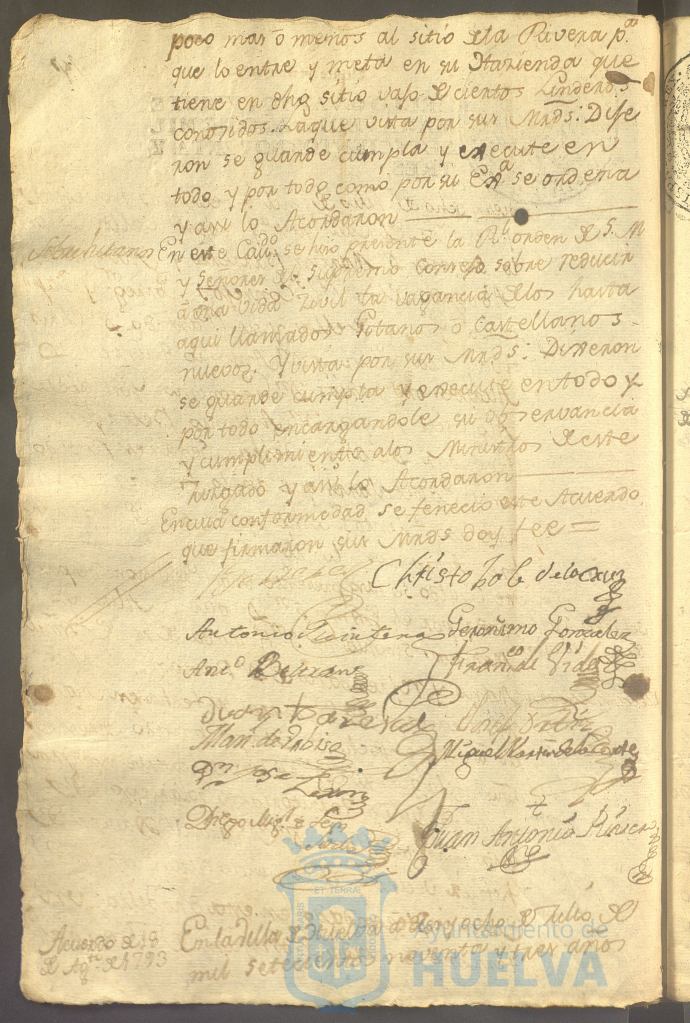 poco mas ó menos al sitio dela Rivera pª
que lo entre y meta en su Hazienda que
tiene en dhô sitio vajo de ciertos Linderos
conosidos. La que vista por sus Mrds: Dije
ron se guarde cumpla y execute en
todo y por todo como por su Exª se ordena
y asi lo Acordaron
En este Cavdo se hizo presente la Rl orden de S. M
y Señores de su Supremo Consejo sobre reducir
á una vida Zivil la vagancia delos hasta
aqui llamados Gitanos ó Castellanos
nuevos. Y vista por sus Mrds: Dixeron
se guarde cumpla y execute en todo y
por todo encargandole su observancia
y cumplimiento alos Ministros de este
Juzgado y asi lo Acordaron
En cuia conformedad se feneció este Acuerdo
que firmaron sus Mrds doy fee =
Christobal de la Cruz
Antonio Quintero
Geronimo Gonzalez
Antº Beltran
Franco de Vides
Miguel
Dn Jose
Juan Antonio
Acuerdo de 18
de 1793
En la Villa de Huelva á dies y ocho de Julio de
mil setecientos noventa y tres años
Ayuntamiento de
HUELVA